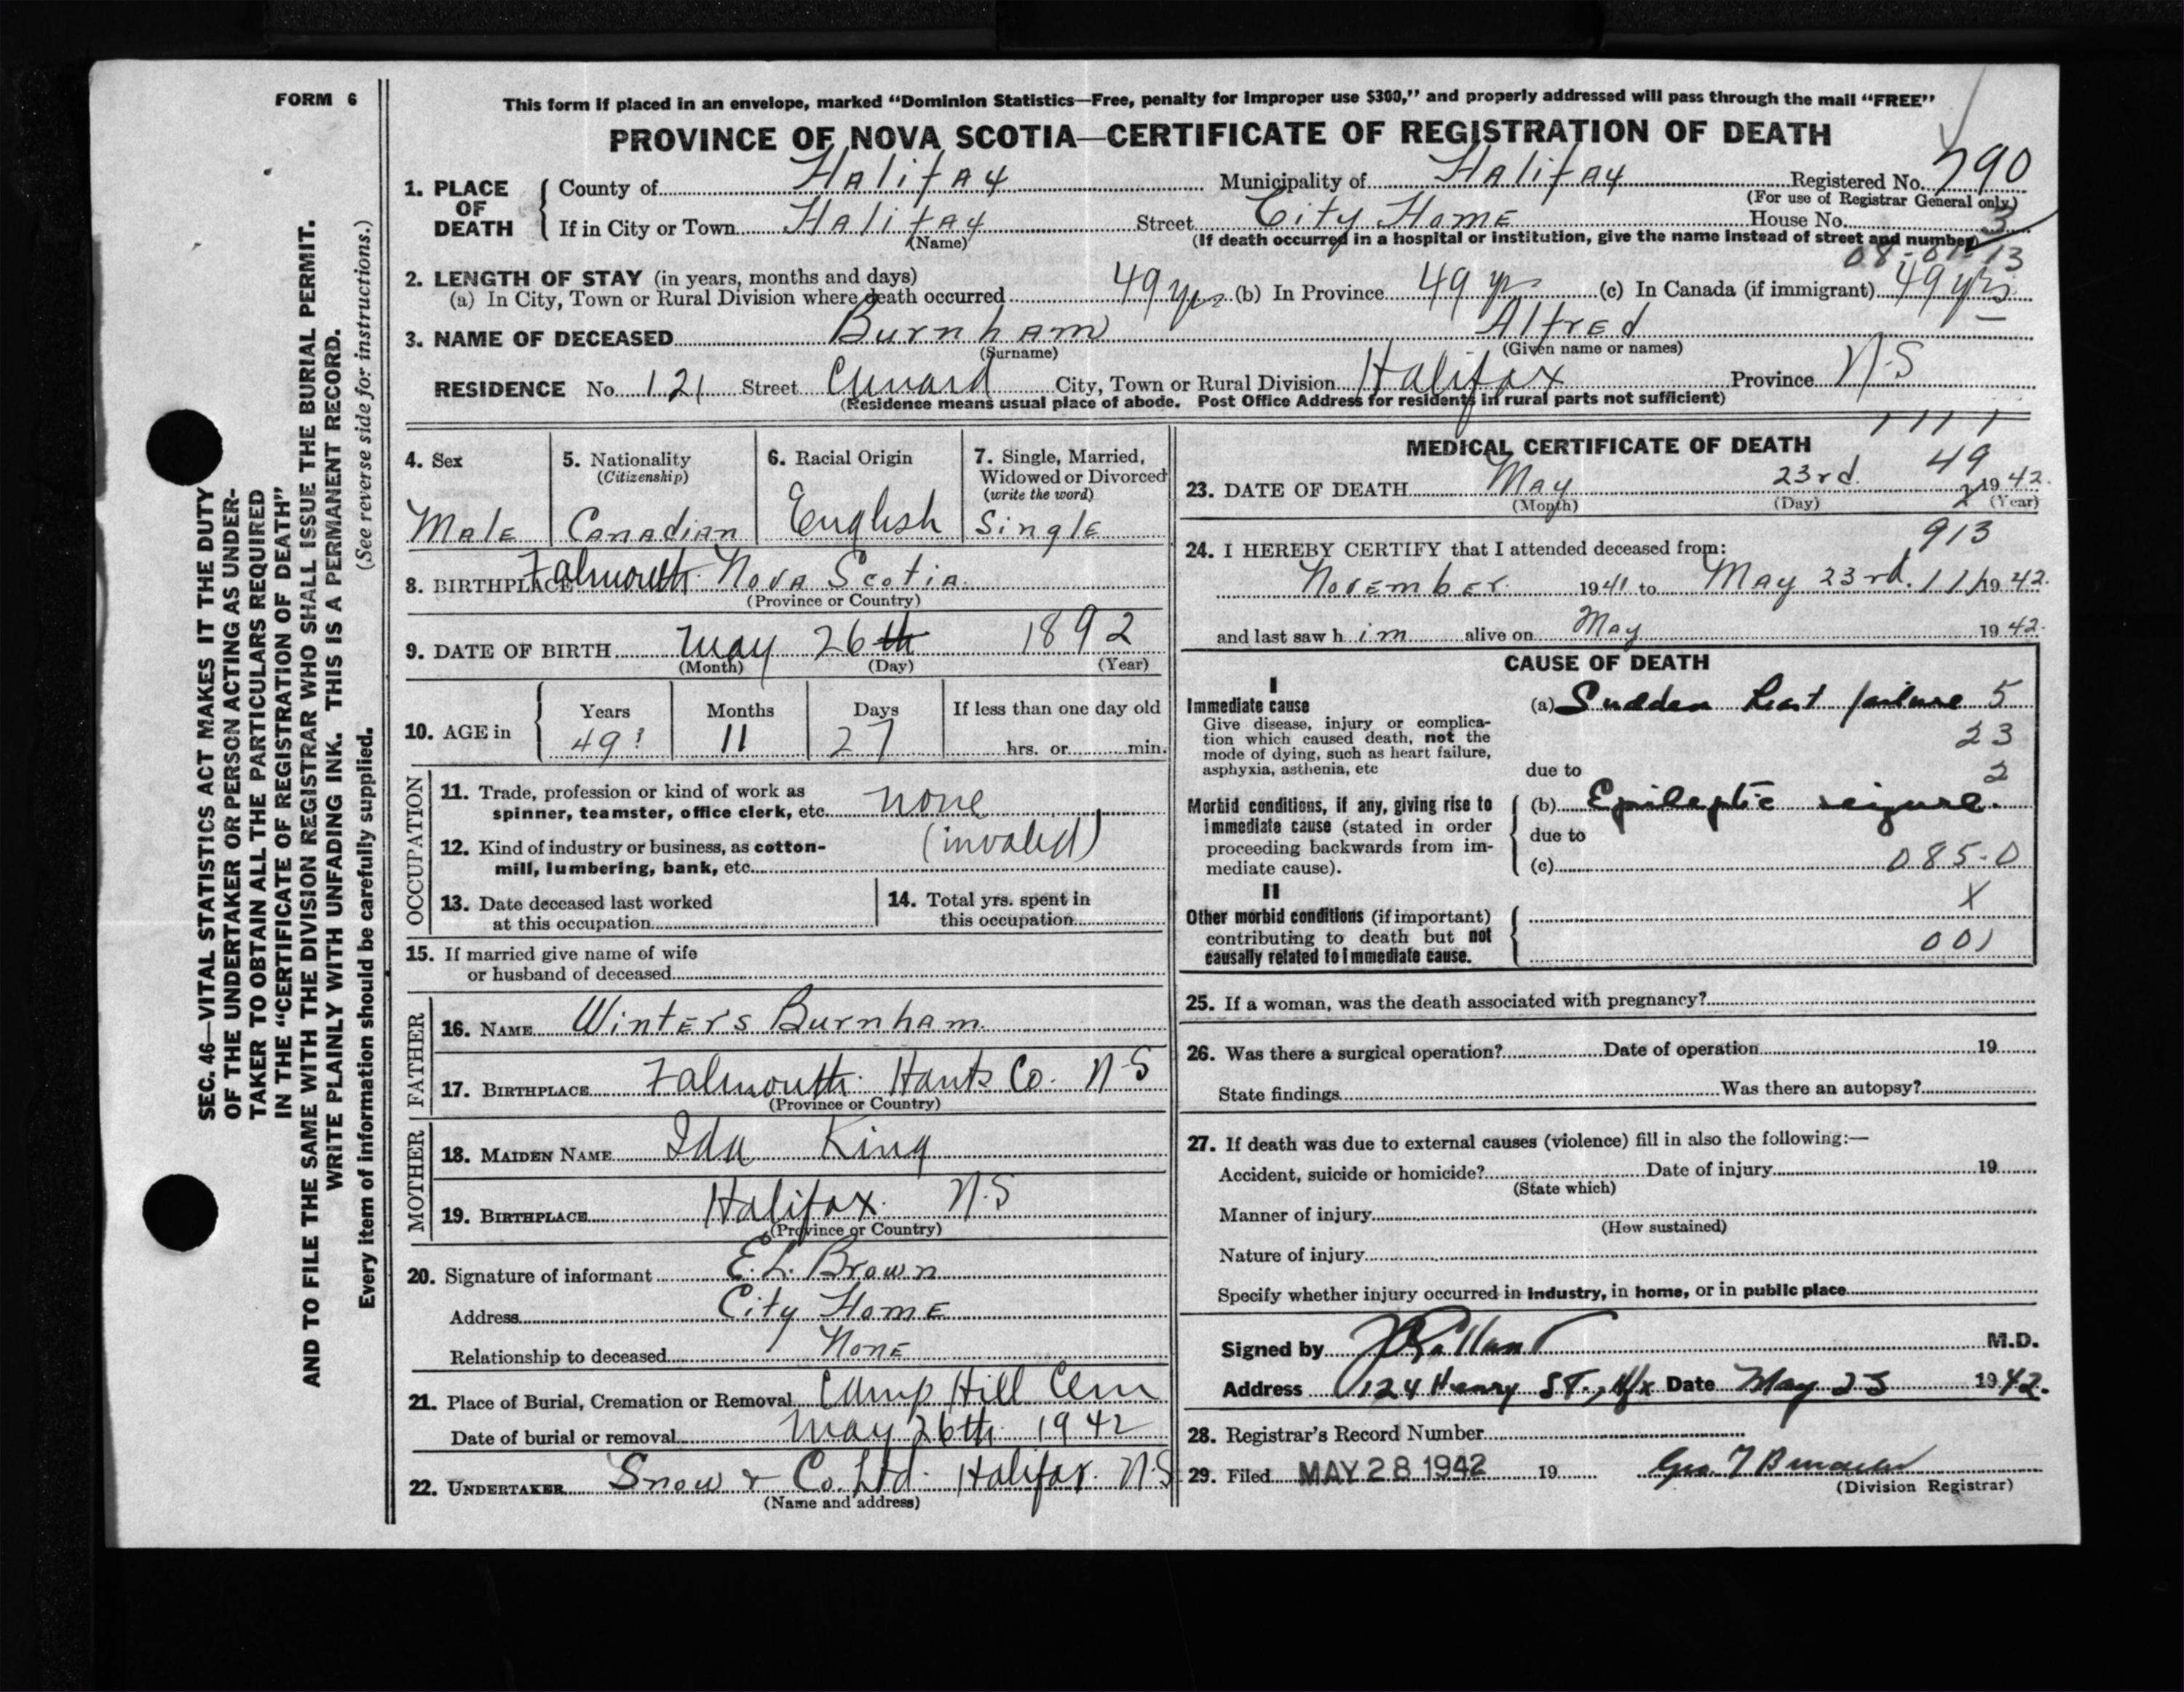 FORM 6
This form if placed in an envelope, marked "Dominion Statistics—Free, penalty for improper use $300," and properly addressed will pass through the mail "FREE"
PROVINCE OF NOVA SCOTIA—CERTIFICATE OF REGISTRATION OF DEATH
1. PLACE OF DEATH County of Halifax Municipality of Halifax Registered No. 790
(For use of Registrar General only)
If in City or Town Halifax Street City Home House No. 3
(Name) (If death occurred in a hospital or institution, give the name instead of street and number)
08-01-13
2. LENGTH OF STAY (in years, months and days)
(a) In City, Town or Rural Division where death occurred 49 yrs (b) In Province 49 yrs (c) In Canada (if immigrant) 49 yrs
3. NAME OF DECEASED Burnham Alfred
(Surname) (Given name or names)
RESIDENCE No. 121 Street Cunard City, Town or Rural Division Halifax Province N.S
(Residence means usual place of abode. Post Office Address for residents in rural parts not sufficient)
4. Sex
Male
5. Nationality
(Citizenship)
Canadian
6. Racial Origin
English
7. Single, Married, Widowed or Divorced
(write the word)
Single
8. BIRTHPLACE Falmouth Nova Scotia
(Province or Country)
9. DATE OF BIRTH May 26th 1892
(Month) (Day) (Year)
10. AGE in Years Months Days If less than one day old
49 11 27 hrs. or min.
OCCUPATION
11. Trade, profession or kind of work as
spinner, teamster, office clerk, etc. none
12. Kind of industry or business, as cotton-
mill, lumbering, bank, etc. (invalid)
13. Date deceased last worked
at this occupation
14. Total yrs. spent in
this occupation
15. If married give name of wife
or husband of deceased
FATHER
16. NAME Winters Burnham
17. BIRTHPLACE Falmouth Hants Co. N-S
(Province or Country)
MOTHER
18. MAIDEN NAME Ida King
19. BIRTHPLACE Halifax. N.S
(Province or Country)
20. Signature of informant E. L. Brown
Address City Home
Relationship to deceased None
21. Place of Burial, Cremation or Removal Camp Hill Cem
Date of burial or removal May 26th 1942
22. UNDERTAKER Snow & Co. Ltd. Halifax. N.S
(Name and address)
1 1 1 1
MEDICAL CERTIFICATE OF DEATH
49
23. DATE OF DEATH May 23rd. 1942.
(Month) (Day) (Year)
2
913
24. I HEREBY CERTIFY that I attended deceased from:
November 1941 to May 23rd. 111 1942.
and last saw him alive on May 1942.
CAUSE OF DEATH
I
Immediate cause
Give disease, injury or complica-
tion which caused death, not the
mode of dying, such as heart failure,
asphyxia, asthenia, etc
(a) Sudden heart failure 5
23
due to 2
Morbid conditions, if any, giving rise to
immediate cause (stated in order
proceeding backwards from im-
mediate cause).
(b) Epileptic seizure.
due to
(c) 085-0
II
Other morbid conditions (if important)
contributing to death but not
causally related to immediate cause.
X
001
25. If a woman, was the death associated with pregnancy?
26. Was there a surgical operation? Date of operation 19
State findings Was there an autopsy?
27. If death was due to external causes (violence) fill in also the following:—
Accident, suicide or homicide? Date of injury 19
(State which)
Manner of injury
(How sustained)
Nature of injury
Specify whether injury occurred in industry, in home, or in public place
Signed by M.D.
Address 124 Henry St., Hfx Date May 23 1942.
28. Registrar's Record Number
29. Filed MAY 28 1942 19
(Division Registrar)
SEC. 46—VITAL STATISTICS ACT MAKES IT THE DUTY
OF THE UNDERTAKER OR PERSON ACTING AS UNDER-
TAKER TO OBTAIN ALL THE PARTICULARS REQUIRED
IN THE "CERTIFICATE OF REGISTRATION OF DEATH"
AND TO FILE THE SAME WITH THE DIVISION REGISTRAR WHO SHALL ISSUE THE BURIAL PERMIT.
WRITE PLAINLY WITH UNFADING INK. THIS IS A PERMANENT RECORD.
Every item of information should be carefully supplied. (See reverse side for instructions.)